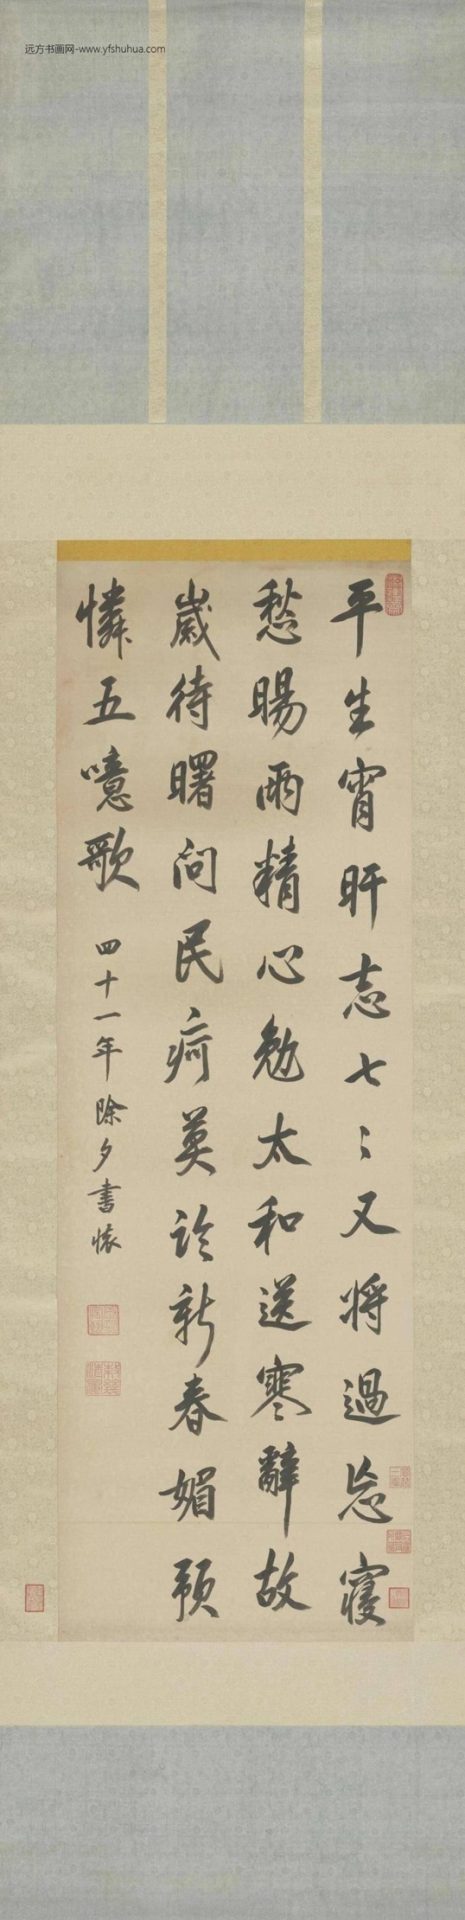 远方书画网-www.yfshuhua.com
平生宵旰志七〻又將過忘寢
愁暘雨精心勉太和送寒辭故
歲待曙問民疴莫論新春媚預
憐五噫歌
四十一年除夕書懷